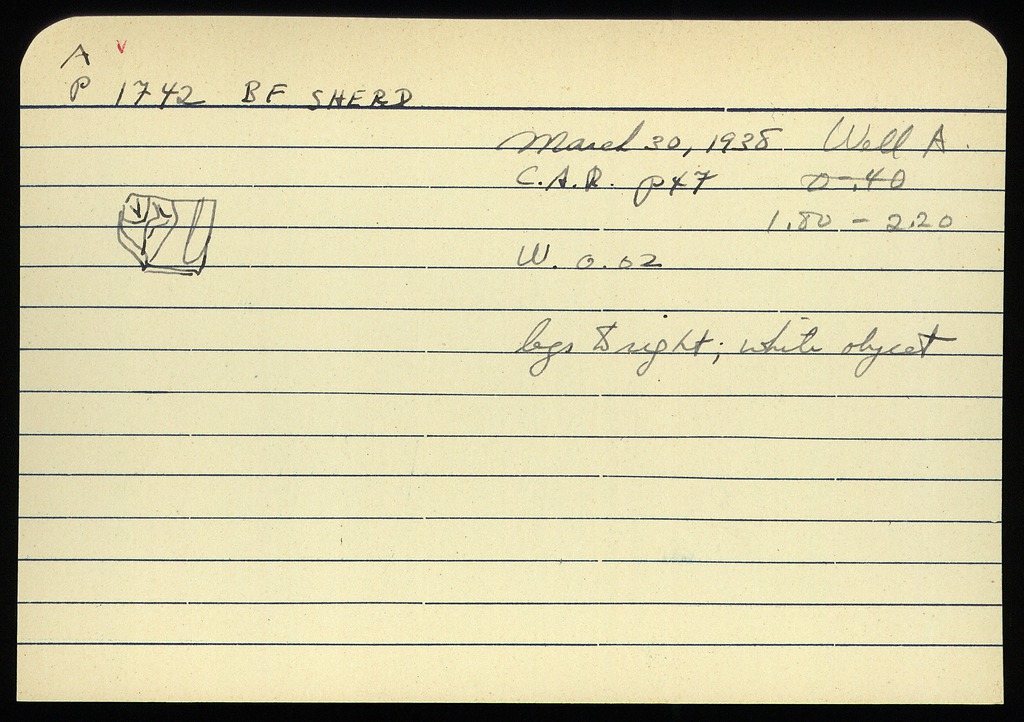 A v
P 1742 BF SHERD
March 30, 1938 Well A.
C.A.R. p47 0-.40
1.80 - 2.20
W. 0.02
legs to right; white object